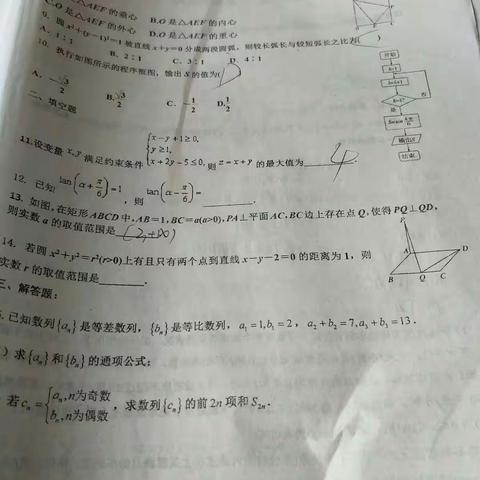 O是△AEF的垂心 B.O是△AEF的内心
C.O是△AEF的外心 D.O是△AEF的重心
9. 圆x²+(y−1)²=1被直线x+y=0分成两段圆弧，则较长弧长与较短弧长之比为( )
A. 1∶1 B. 2∶1 C. 3∶1 D. 4∶1
10. 执行如图所示的程序框图，输出S的值为( D )
A. −√3/2 B. √3/2 C. −1/2 D. 1/2
开始
否
是
输出S
结束
二、填空题
11.设变量 x,y 满足约束条件 {x−y+1≥0, y≥1, x+2y−5≤0, 则 z=x+y 的最大值为 4
12. 已知 tan(α+π/6)=1，则 tan(α−π/6)=
13. 如图,在矩形ABCD中,AB=1,BC=a(a>0),PA⊥平面AC,BC边上存在点Q,使得PQ⊥QD,
则实数a的取值范围是 [2,+∞)
P
A D
B Q C
14. 若圆x²+y²=r²(r>0)上有且只有两个点到直线x−y−2=0的距离为1，则
实数r的取值范围是
三、解答题：
已知数列{aₙ}是等差数列，{bₙ}是等比数列，a₁=1,b₁=2，a₂+b₂=7,a₃+b₃=13．
）求{aₙ}和{bₙ}的通项公式；
若cₙ={aₙ,n为奇数 bₙ,n为偶数，求数列{cₙ}的前2n项和S₂ₙ．